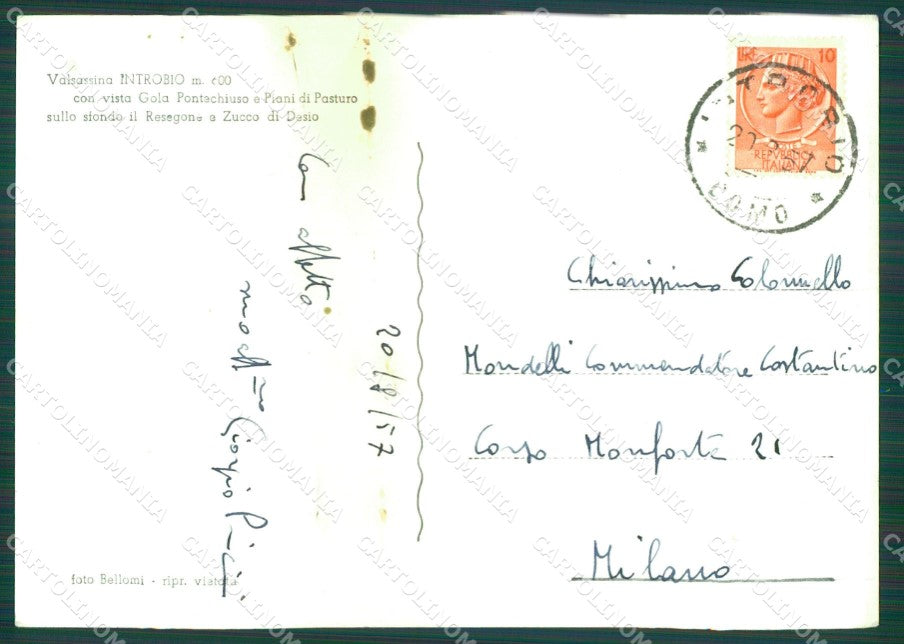 Valsassina INTROBIO m. 600
con vista Gola Pontechiuso e Piani di Pasturo
sullo sfondo il Resegone e Zucco di Desio
Con affetto
Giorgio
20/8/57
foto Bellomi - ripr. vietata
LIRE 10
REPVBBLICA
ITALIANA
INTROBIO
20.8.57
* COMO *
Chiarissimo Colonnello
Mondelli Commendatore Costantino
Corso Monforte 21
Milano
CARTOLINOMANIA